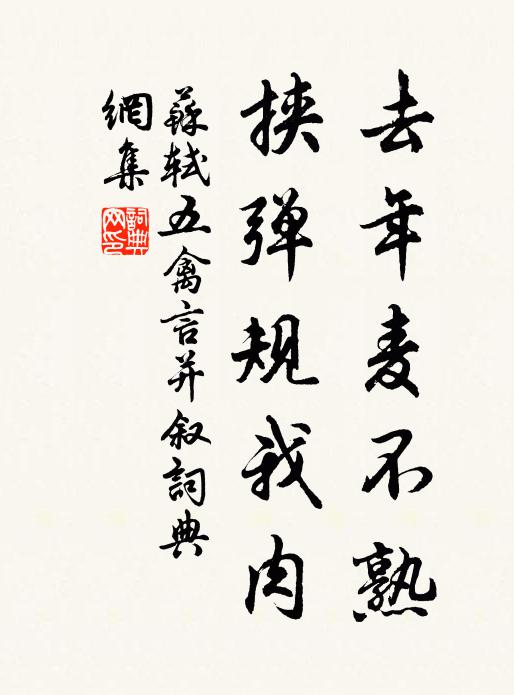 去年麦不熟
挟弹规我肉
蘇軾五禽言并叙詞典
網集
詞典
网印